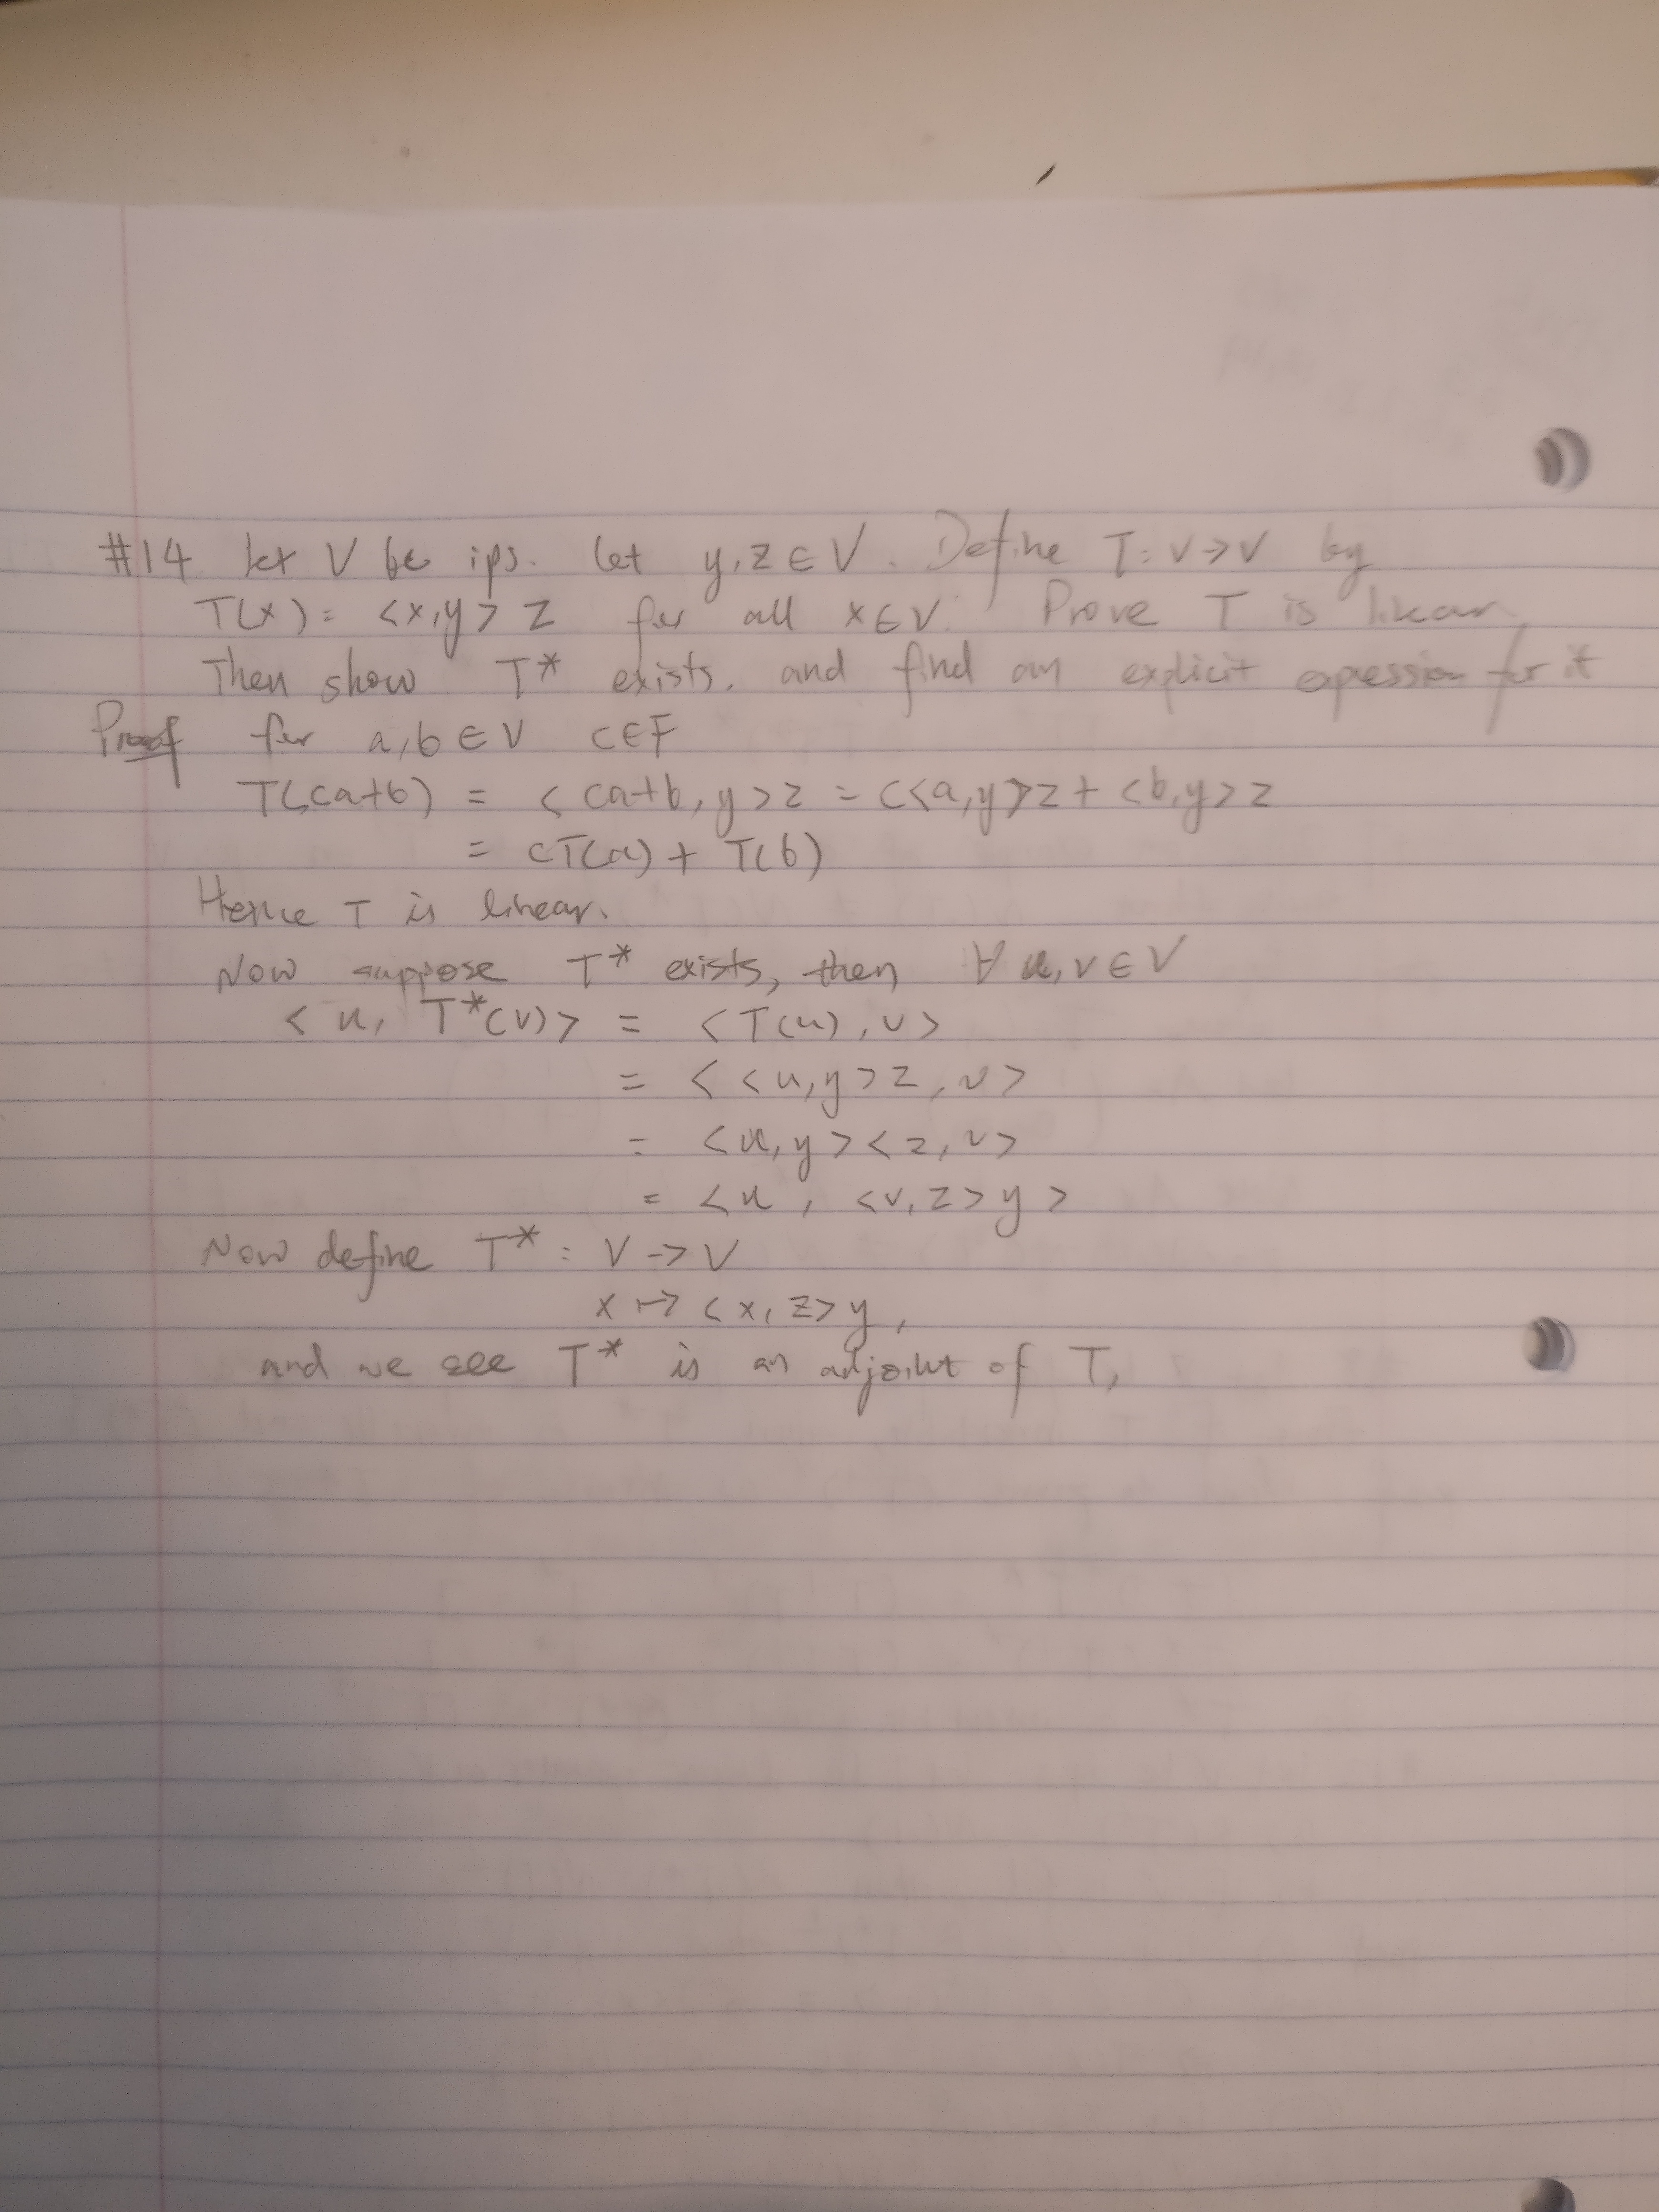 #14 let V be ips. let y, z ∈ V. Define T: V → V by
T(x) = <x,y> z for all x ∈ V. Prove T is linear.
Then show T* exists. and find an explicit expression for it
Proof for a,b ∈ V c ∈ F
T(ca+b) = <ca+b, y>z = c<a,y>z + <b,y>z
= cT(a) + T(b)
Hence T is linear.
Now suppose T* exists, then ∀ u,v ∈ V
<u, T*(v)> = <T(u), v>
= < <u,y>z, v>
= <u,y><z,v>
= <u, <v,z>y>
Now define T* : V → V
x ↦ <x, z>y,
and we see T* is an adjoint of T,